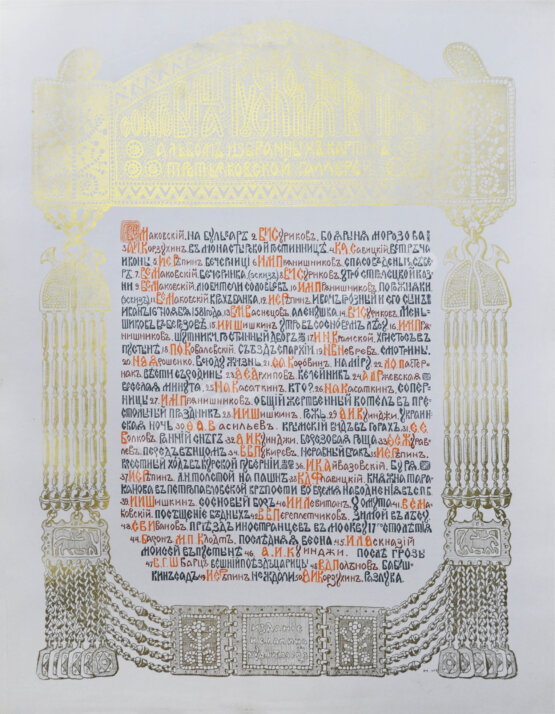 АЛЬБОМЪ ИЗБРАННЫХЪ КАРТИНЪ
ТРЕТЬЯКОВСКОЙ ГАЛЛЕРЕИ
В.Е. Маковскій. НА БУЛЬВАРѢ 2 В.И. Суриковъ. БОЯРЫНЯ МОРОЗОВА
3 А.И. Корзухинъ. ВЪ МОНАСТЫРСКОЙ ГОСТИННИЦѢ 4 К.А. Савицкій. ВСТРѢЧА
ИКОНЫ 5 И.Е. Рѣпинъ. ВЕЧЕРНИЦЫ 6 И.М. Прянишниковъ. СПАСОВЪ ДЕНЬ НА СѢВЕ-
РѢ 7 В.Е. Маковскій. ВЕЧЕРИНКА (эскизъ) 8 В.И. Суриковъ. УТРО СТРѢЛЕЦКОЙ КАЗ-
НИ 9 В.Е. Маковскій. ЛЮБИТЕЛИ СОЛОВЬЕВЪ 10 И.М. Прянишниковъ. ПОРОЖНЯКИ
(эскизъ) 11 В.Е. Маковскій. КРАХЪ БАНКА. 12 И.Е. Рѣпинъ. ИВАНЪ ГРОЗНЫЙ И ЕГО СЫНЪ
ИВАНЪ 16 НОЯБРЯ 1581 ГОДА. 13 В.М. Васнецовъ. АЛЕНУШКА. 14 В.И. Суриковъ. МЕНЬ-
ШИКОВЪ ВЪ БЕРЕЗОВѢ. 15 И.И. Шишкинъ. УТРО ВЪ СОСНОВОМЪ ЛѢСУ. 16 И.М. Пря-
нишниковъ. ШУТНИКИ, ГОСТИННЫЙ ДВОРЪ 17 И.Н. Крамской. ХРИСТОСЪ ВЪ
ПУСТЫНѢ 18 П.О. Ковалевскій. СЪѢЗДЪ ЕПАРХІИ. 19 Н.В. Невревъ. СМОТРИНЫ.
20 Н.А. Ярошенко. ВСЮДУ ЖИЗНЬ. 21 С.А. Коровинъ. НА МІРУ. 22 Л.О. Пастер-
накъ. ВѢСТИ СЪ РОДИНЫ 23 А.Е. Архиповъ. КЕЛЕЙНИКЪ. 24 А.П. Ржевская
ВЕСЕЛАЯ МИНУТА. 25 Н.А. Касаткинъ. КТО? 26 Н.А. Касаткинъ. СОПЕР-
НИЦЫ 27 И.М. Прянишниковъ. ОБЩІЙ ЖЕРТВЕННЫЙ КОТЕЛЪ ВЪ ПРЕ-
СТОЛЬНЫЙ ПРАЗДНИКЪ. 28 И.И. Шишкинъ. РОЖЬ. 29 А.И. Куинджи. УКРАИН-
СКАЯ НОЧЬ 30 Ѳ.А. Васильевъ. КРЫМСКІЙ ВИДЪ ВЪ ГОРАХЪ. 31 Е.Е.
Волковъ. РАННІЙ СНѢГЪ 32 А.И. Куинджи. БЕРЕЗОВАЯ РОЩА 33 Ф.С. Журав-
левъ. ПЕРЕДЪ ВѢНЦОМЪ 34 В.В. Пукиревъ. НЕРАВНЫЙ БРАКЪ 35 И.Е. Рѣпинъ.
КРЕСТНЫЙ ХОДЪ ВЪ КУРСКОЙ ГУБЕРНІИ 36 И.К. Айвазовскій. БУРЯ
37 И.Е. Рѣпинъ. Л.Н. ТОЛСТОЙ НА ПАШНѢ 38 К.Д. Флавицкій. КНЯЖНА ТАРА-
КАНОВА ВЪ ПЕТРОПАВЛОВСКОЙ КРѢПОСТИ ВО ВРЕМЯ НАВОДНЕНІЯ ВЪ С.П.Б.
39 И.И. Шишкинъ. СОСНОВЫЙ БОРЪ 40 И.И. Левитанъ. У ОМУТА 41 В.Е. Ма-
ковскій. ПОСѢЩЕНІЕ БѢДНЫХЪ 42 В.В. Переплетчиковъ. ЗИМОЙ ВЪ ЛѢСУ
43 С.В. Ивановъ. ПРІѢЗДЪ ИНОСТРАНЦЕВЪ ВЪ МОСКВУ 17го СТОЛѢТІЯ
44 Баронъ М.П. Клодтъ. ПОСЛѢДНЯЯ ВЕСНА 45
МОИСЕЙ ВЪ ПУСТЫНѢ 46 А.И. Куинджи. ПОСЛѢ ГРОЗЫ
47 В.Г. Ш ВЕШНІЙ ПОѢЗДЪ ЦАРИЦЫ 48 В.Д. Полѣновъ. БАБУШ-
КИНЪ САДЪ 49 И.Е. Рѣпинъ. НЕ ЖДАЛИ 50 А.И. Корзухинъ. РАЗЛУКА.